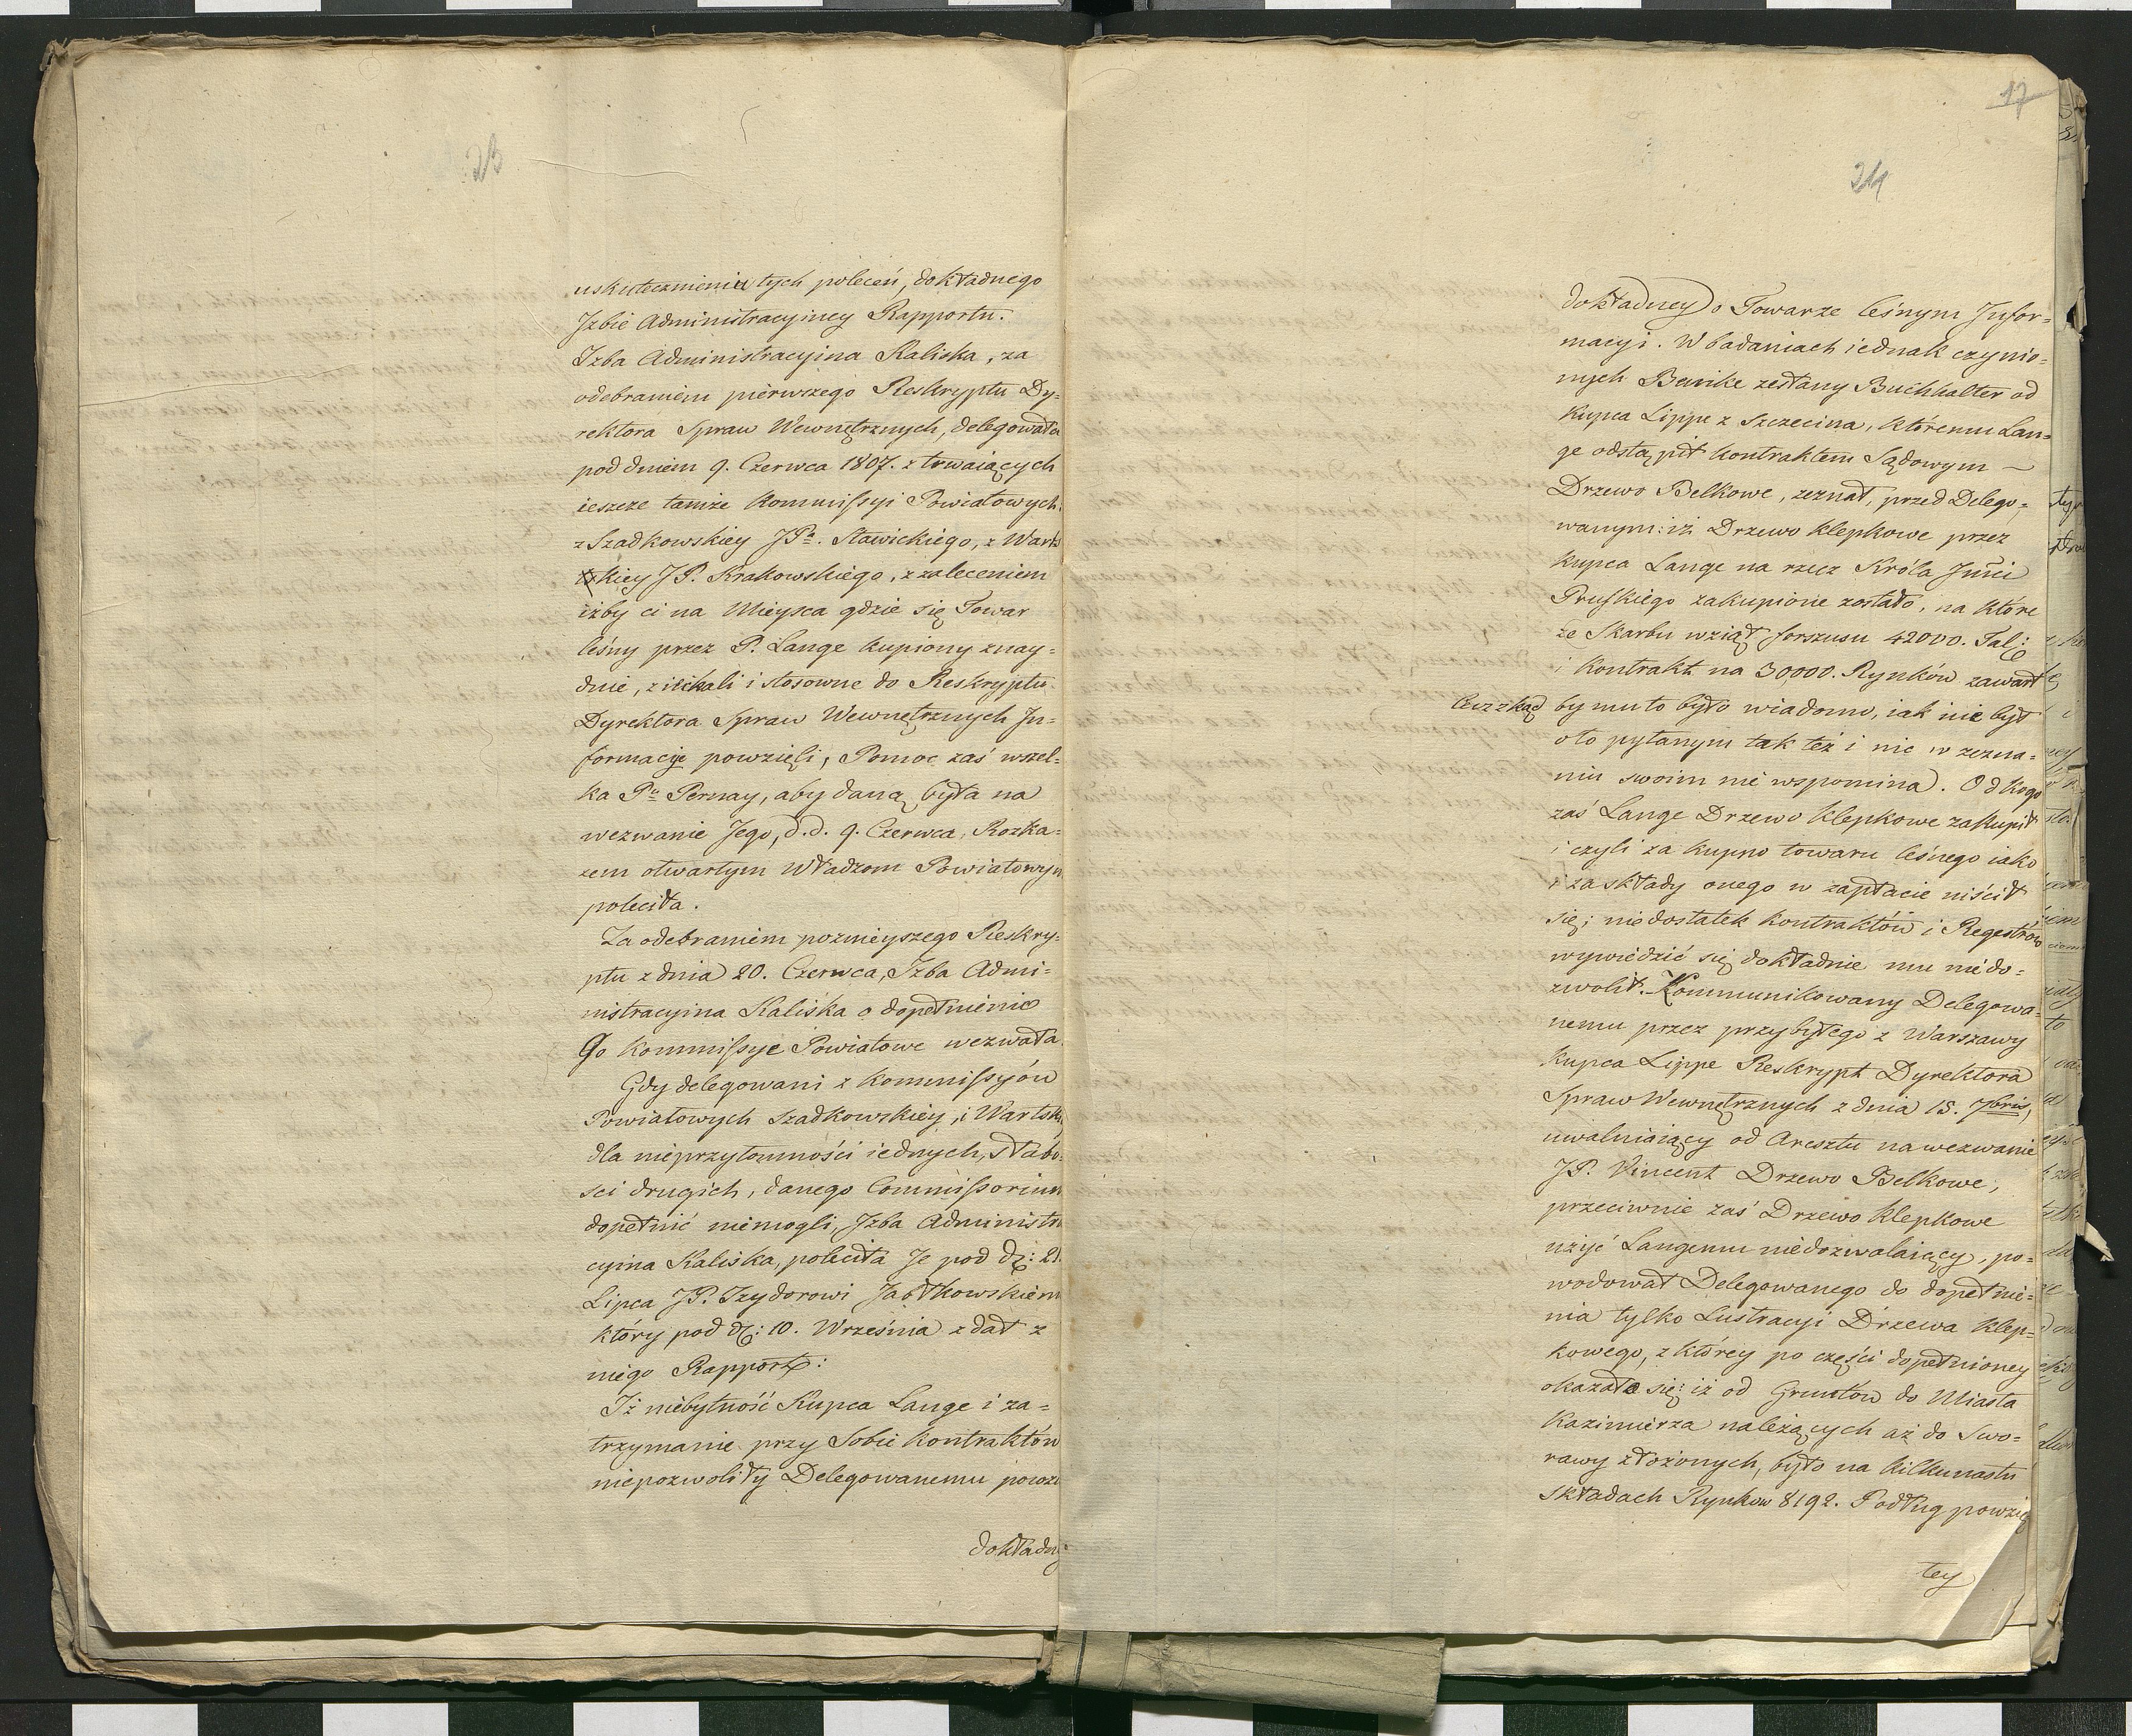 23
uskutecznieniu tych poleceń, dokładnego
Jzbie Administracyiney Rapportu.
Izba Administracyina Kaliska, za
odebraniem pierwszego Reskryptu Dy-
rektora Spraw Wewnętrznych, delegowała
pod dniem 9. Czerwca 1807. z trwaiących
ieszcze tamże Kommissyi Powiatowych.
z Szadkowskiey JPa. Stawickiego, z Warts
kiey JP. Krakowskiego, z zaleceniem
iżby ci na Mieysca gdzie się Towar
leśny przez P. Lange kupiony znay-
dnie, ziechali i stosowne do Reskryptu
Dyrektora Spraw Wewnętrznych In-
formacye powzięli, Pomoc zaś wszel-
ka Pu Pernay, aby daną była na
wezwanie Jego, d.d. 9. Czerwca, Rozka-
zem otwartym Władzom Powiatowym
poleciła.
Za odebraniem poznieyszego Reskry-
ptu z dnia 20. Czerwca, Izba Admi-
nistracyina Kaliska o dopełnienie
Go Kommissye Powiatowe wezwała.
Gdy delegowani z Kommissyów
Powiatowych Szadkowskiey, i Wartski
dla nieprzytomności iednych, słabo-
sci drugich, danego Commissorium
dopełnić niemogli, Jzba Administra
cyina Kaliska, poleciła Je pod d: 21.
Lipca JP. Izydorowi Jabłkowskiem
który pod d: 10. Września zdał z
niego Rapport:
Iż niebytność Kupca Lange i za-
trzymanie przy Sobie Kontraktów
niepozwoliły Delegowanemu powzi
dokładn
17
24
dokładney o Towarze leśnym Infor-
macyi. W badaniach iednak czynio-
nych Bewike zesłany Buchhalter od
Kupca Lippe z Szczecina, któremu Lan-
ge odstąpił Kontraktem Sądowym —
Drzewo Belkowe, zeznał, przed Delego-
wanym: iż Drzewo klepkowe przez
Kupca Lange na rzecz Króla Jmci
Pruskiego zakupione zostało, na które
że Skarbu wziął forszusu 42000. Tal:
i Kontrakt na 30000. Rynków zawarł
Czy zkąd by mu to było wiadomo, iak nie był
oto pytanym tak też i nic w zezna-
niu swoim nie wspomina. Od kogo
zaś Lange Drzewo klepkowe zakupił
i czyli za kupno towaru leśnego iako
i za składy onego w zapłacie uiścił
się; niedostatek Kontraktów i Regestrów
wywiedzić się dokładnie mu niedo-
zwolił. Kommunikowany Delegowa-
nemu przez przybyłego z Warszawy
Kupca Lippe Reskrypt Dyrektora
Spraw Wewnętrznych z dnia 15. 7bris,
uwalniaiący od Aresztu na wezwanie
JP. Vincent Drzewo Belkowe,
przeciwnie zaś Drzewo klepkowe
użyć Langemu niedozwalaiący, po-
wodował Delegowanego do dopełnie-
nia tylko Lustracyi Drzewa klep-
kowego, z którey po części dopełnioney
okazało się: iż od Gruntów do Miasta
Kazimierza należących aż do Swo-
rawy złożonych, było na kilkunastu
składach Rynków 8192. Podług powzię
tey